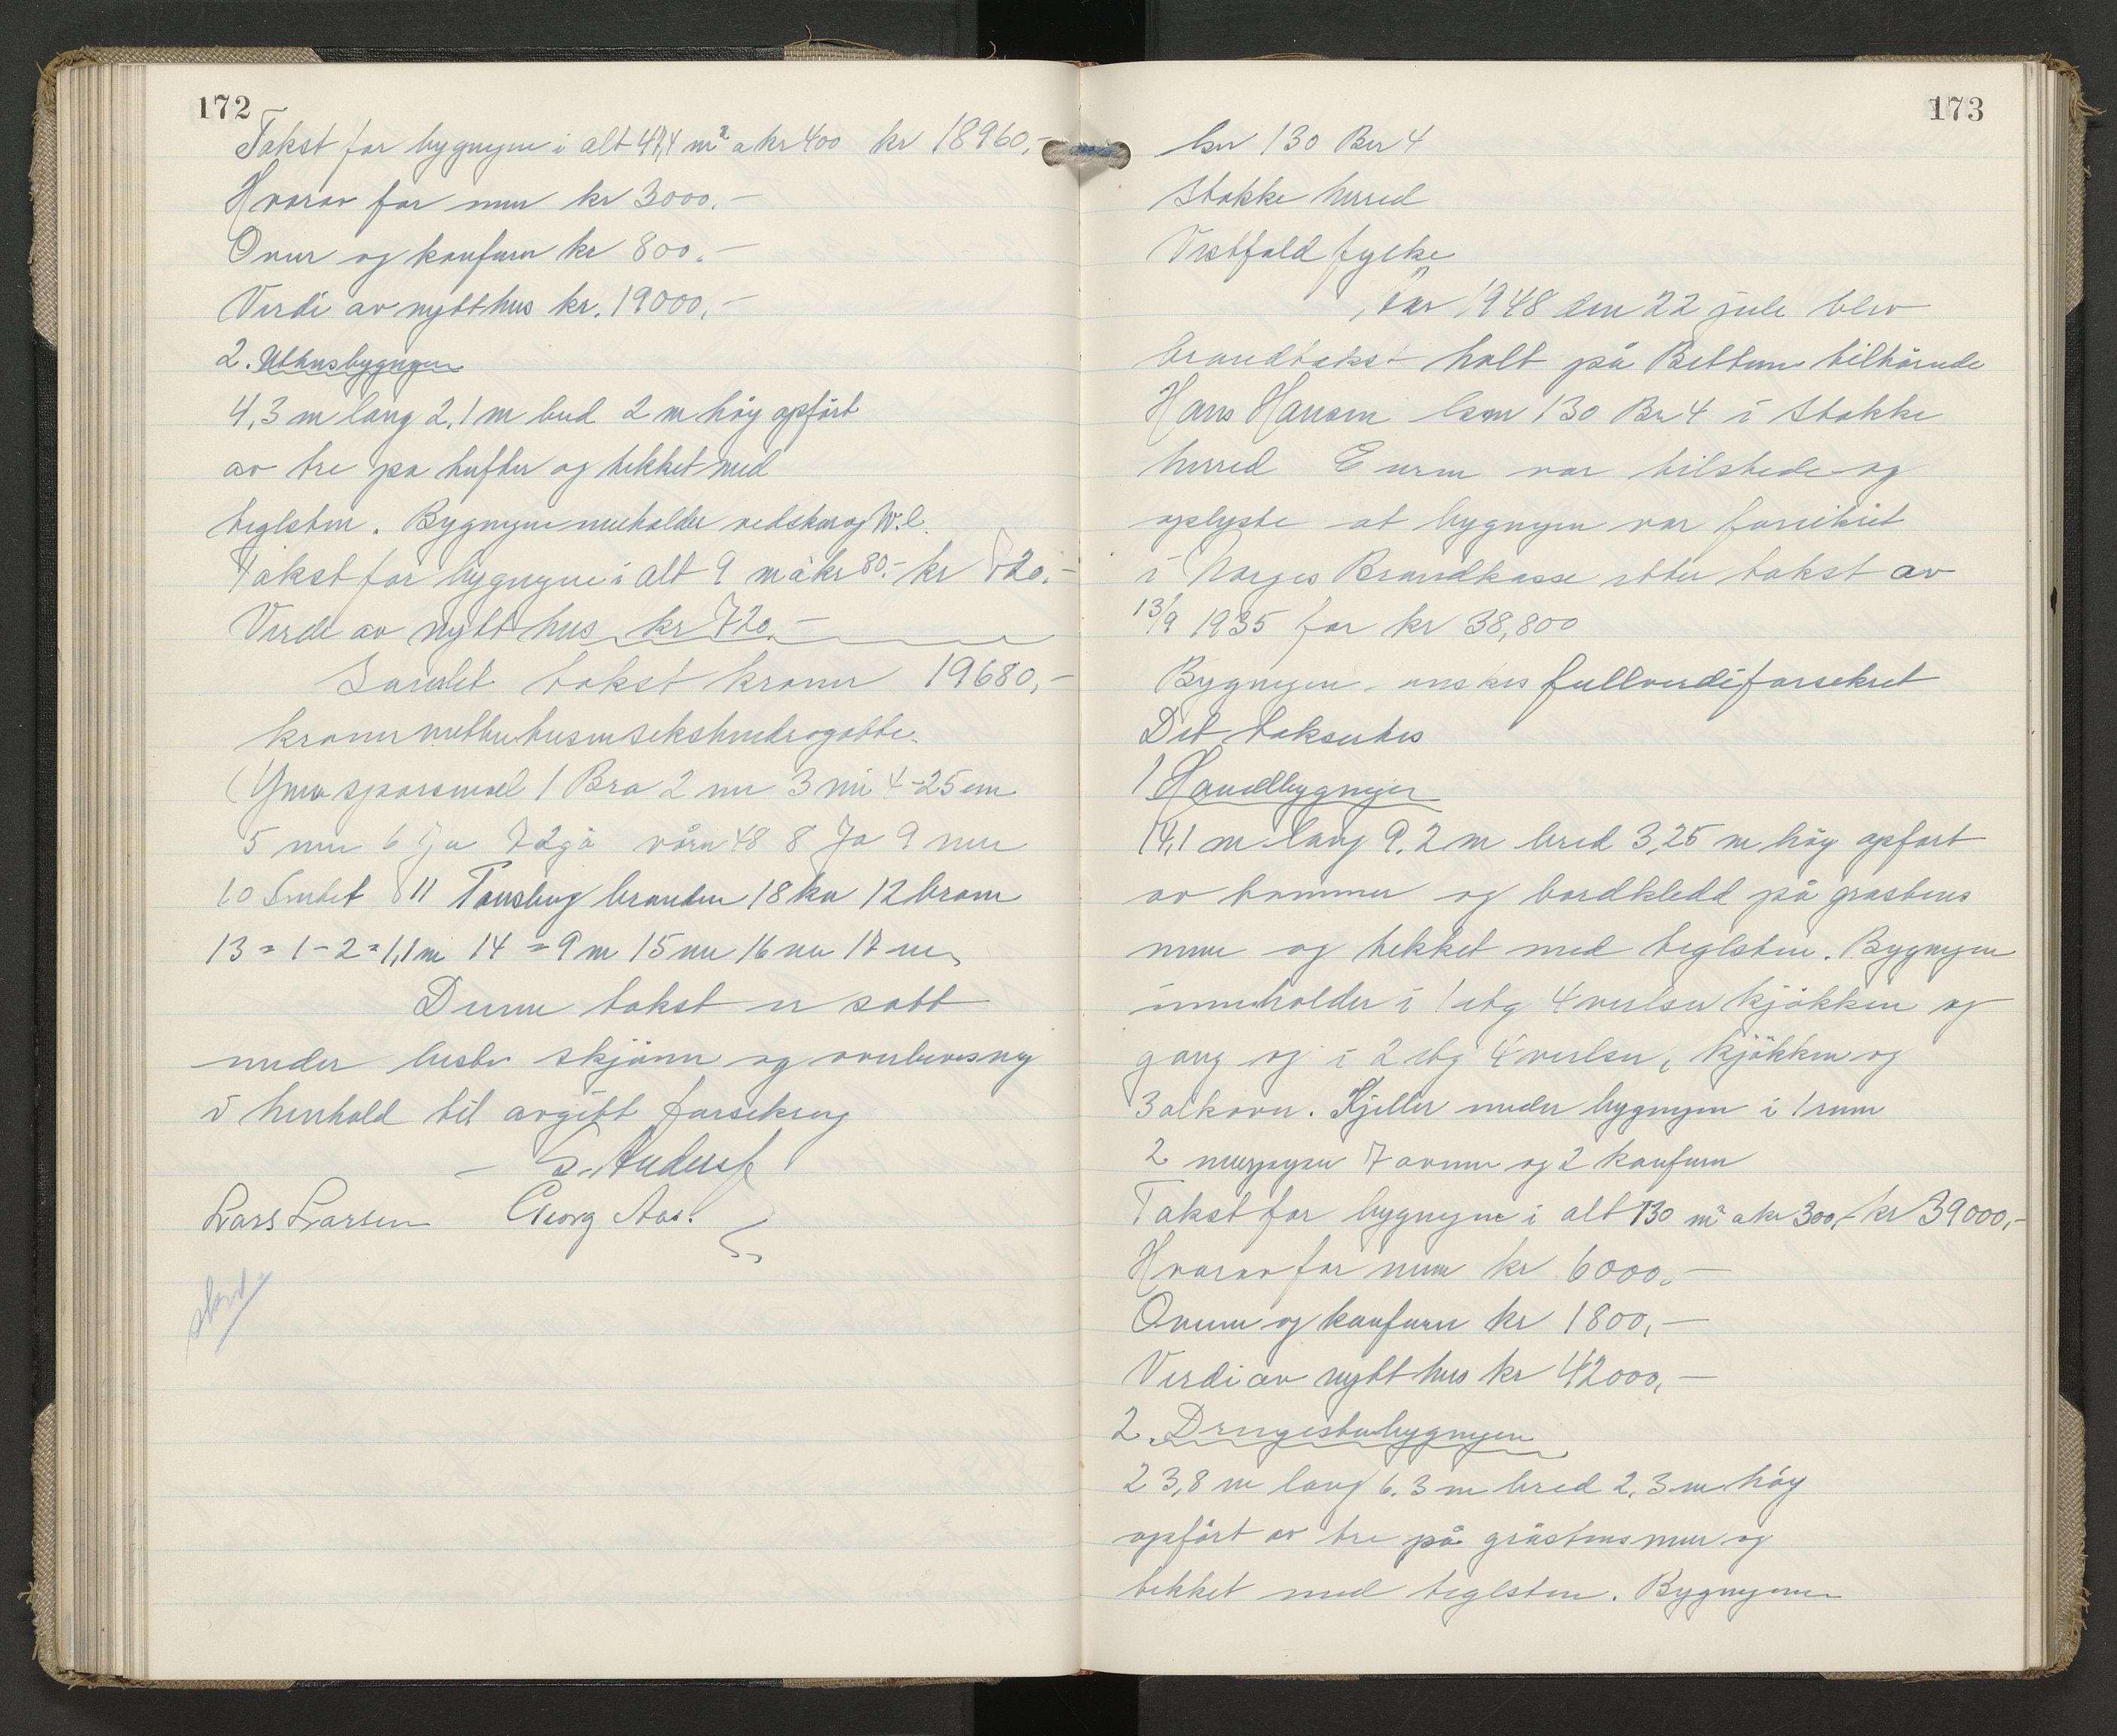 172
Takst for bygningen i alt 47,4 m² a kr 400 kr 18960,-
Hvorav for mur kr 3000.-
Ovner og komfur kr 800.-
Verdi av nytt hus kr. 19000.-
2. Uthusbygningen
4,3 m lang 2,1 m bred 2 m høy opført
av tre på tufter og tekket med
teglsten. Bygningen inneholder vedskur og W.C.
Takst for bygningen i alt 9 m à kr 80.- kr 720.-
Verdi av nytt hus kr 720.-
Samlet takst kroner 19680,-
kroner nitten tusen sekshundrogotti.
Ymse sporsmål 1 Bra 2 nei 3 nei 4 - 25 cm
5 nei 6 Ja 7 2 gå våru 48 8 Ja 9 nei
10 Smbet 11 Tønsberg branden 18 km 12 brann
13 = 1 - 2 = 1,1 m 14 = 9 m 15 nei 16 nei 17 nei
Denne takst er satt
under beste skjønn og overbevisning
i henhold til avgitt forsikring
Lars Larsen Georg Aas.
173
Gnr 130 Bnr 4
Stokke herred
Vestfold fylke
År 1948 den 22 juli blev
brandtakst holt på Bettum tilhørende
Hans Hansen Gnr 130 Br 4 i Stokke
herred Eieren var tilstede og
oplyste at bygningen var forsikret
i Norges Brandkasse etter takst av
13/9 1935 for kr 38,800
Bygningen ønskes fullverdiforsekret
Det taksertes
1 Hovedbygningen
14,1 m lang 9,2 m bred 3,25 m høy opført
av tømmer og bordkledd på gråstens
mur og tekket med teglsten. Bygningen
inneholder i 1 etg 4 verelser kjøkken og
gang og i 2 etg 4 verelser, kjøkken og
3 alkover. Kjeller under bygningen i 1 rum
2 murpiper 7 ovner og 2 komfurer
Takst for bygningen i alt 130 m² a kr 300,- kr 39000,-
Hvorav for mur kr 6000.-
Ovner og komfurer kr 1800,-
Verdi av nytt hus kr 42000,-
2. Drengestubygningen
23,8 m lang 6.3 m bred 2,3 m høy
opført av tre på gråstensmur og
tekket med teglsten. Bygningen